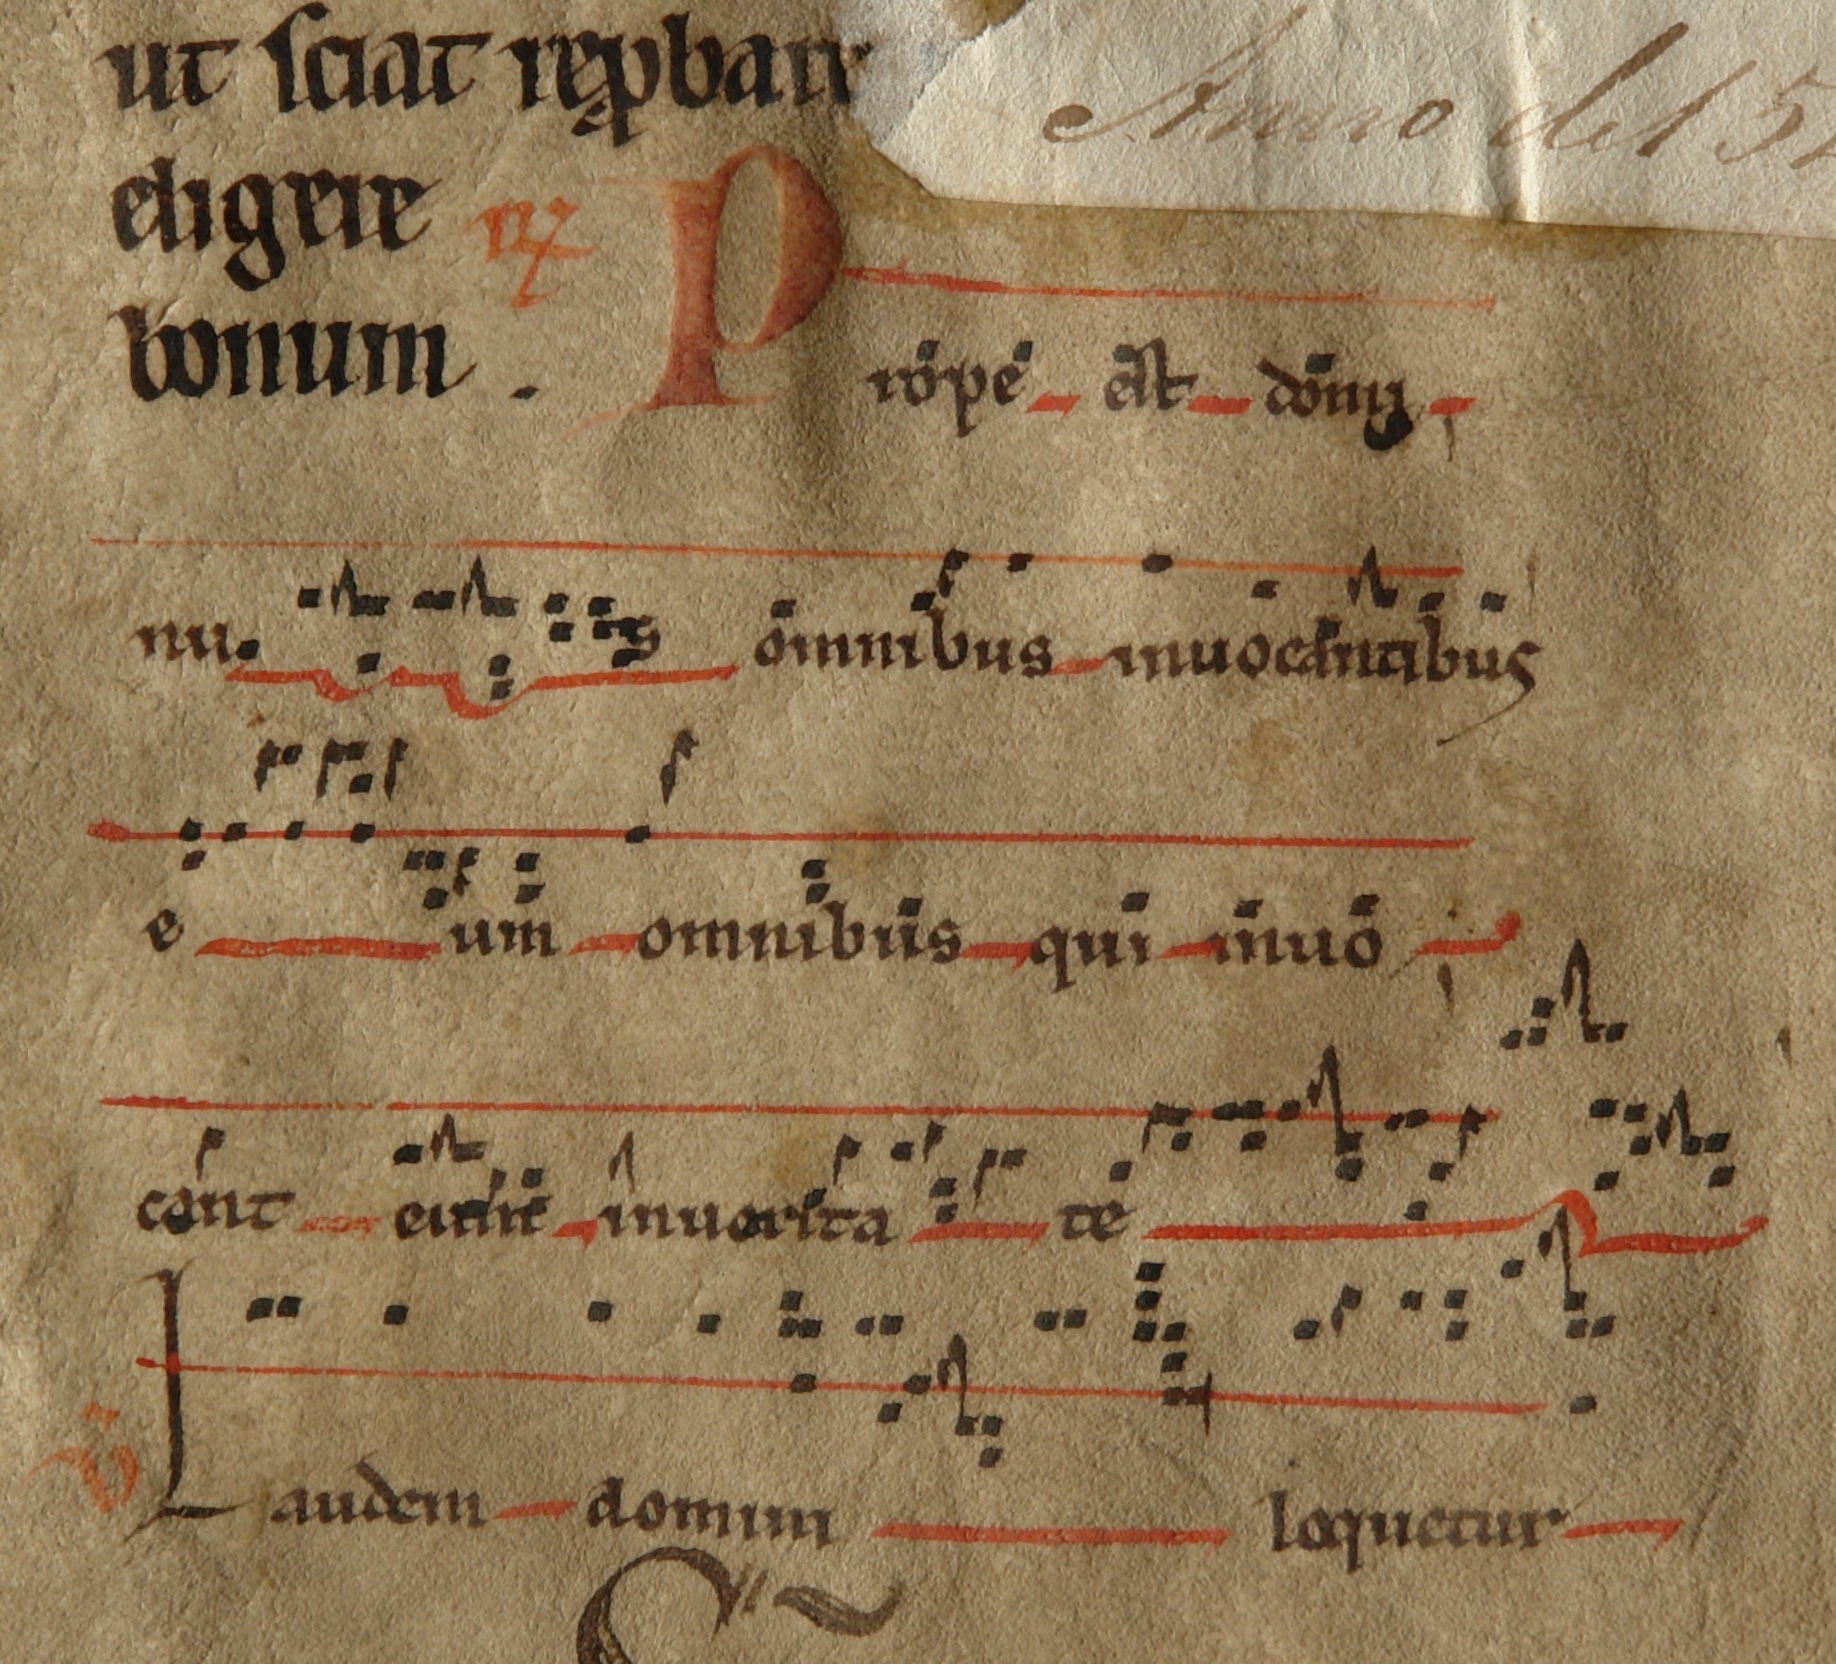 ut sciat rep̱bare
Anno del 15
eligere ℟
bonum. Prope est domi
nus omnibus inuocantibus
eum omnibus qui inuo
cant eum in uerita te
℣ Laudem domini loquetur